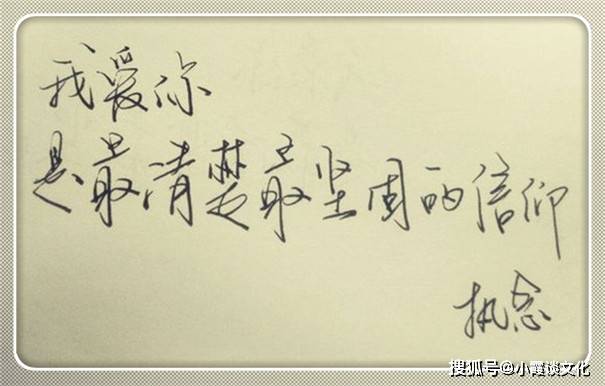 我爱你
是最清楚最坚固的信仰
执念
搜狐号@小霞谈文化